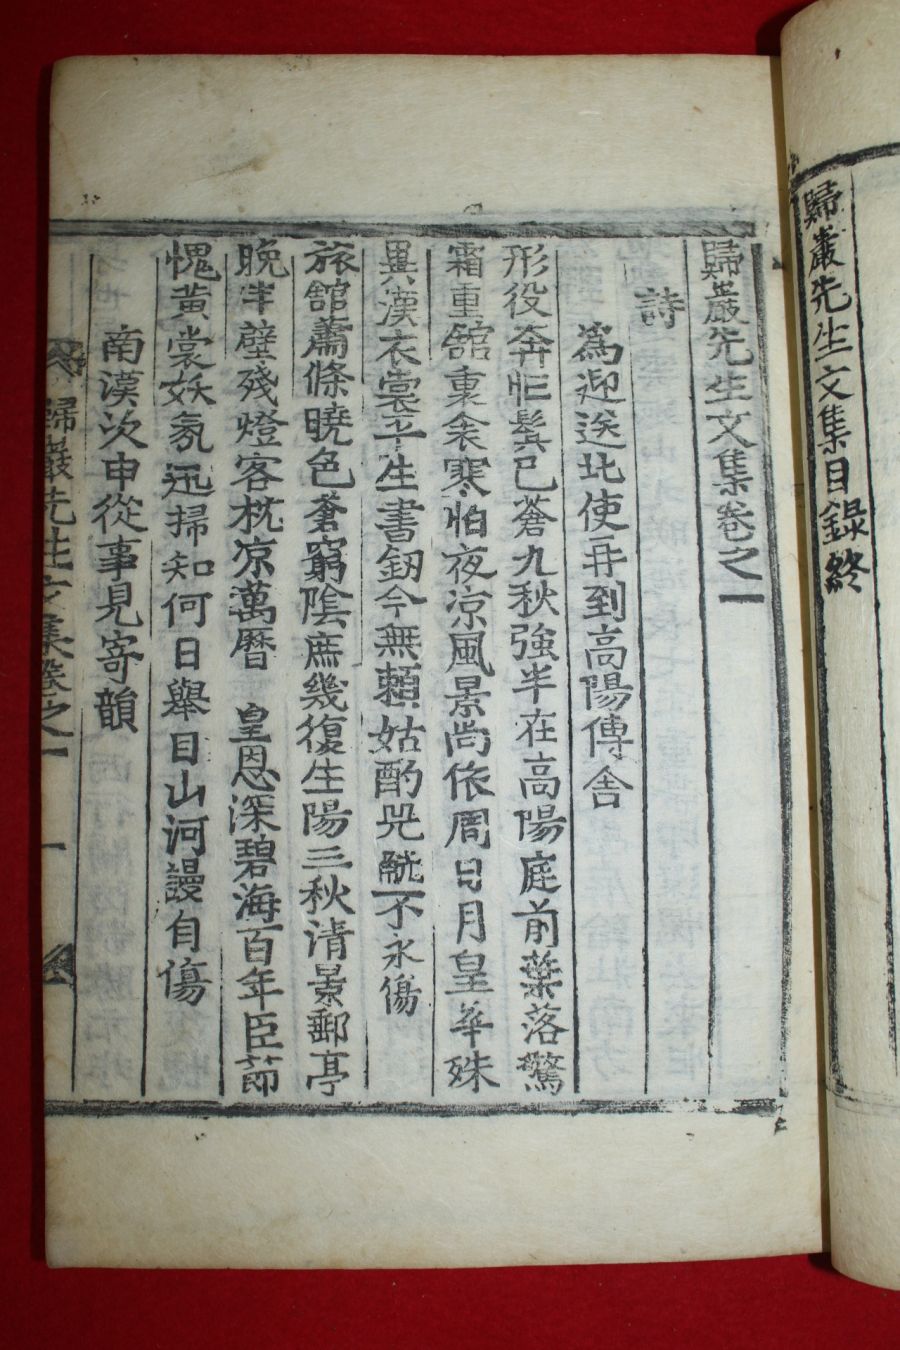 歸巖先生文集目錄終
歸巖先生文集卷之一
詩
爲迎送北使再到高陽傳舍
形役奔忙鬓已蒼九秋強半在高陽庭前葉落驚
霜重舘裏衾寒怕夜凉風景尙依周日月皇華殊
異漢衣裳平生書釰今無賴姑酌兕觥不永傷
旅舘蕭條曉色蒼窮陰庶幾復生陽三秋清景郵亭
晩半壁殘燈客枕凉萬曆 皇恩深碧海百年臣節
愧黃裳妖氛迅掃知何日舉目山河謾自傷
南漢次申從事見寄韻
歸巖先生文集卷之一 一